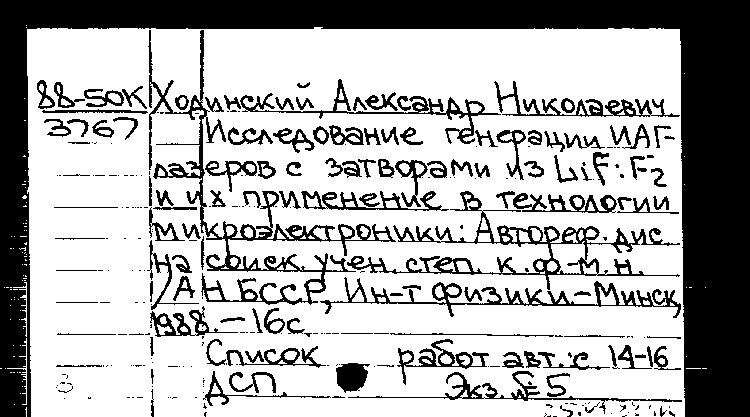 88-50К Ходинский, Александр Николаевич.
3767 Исследование генерации ИАГ-
лазеров с затворами из LiF:F₂⁻
и их применение в технологии
микроэлектроники: Автореф. дис.
на соиск. учен. степ. к.ф.-м.н.
/АН БССР, Ин-т физики.-Минск,
1988. - 16с.
Список работ авт.: с. 14-16
ДСП. Экз. № 5.
3